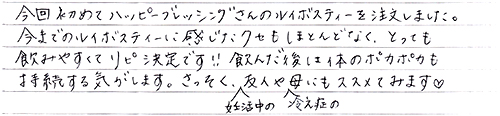 今回初めてハッピーブレッシングさんのルイボスティーを注文しました。
今までのルイボスティーに感じたクセもほとんどなく、とっても
飲みやすくてリピ決定です!! 飲んだ後は体のポカポカも
持続する気がします。さっそく、友人や母にもススメてみます♡
妊活中の 冷え症の